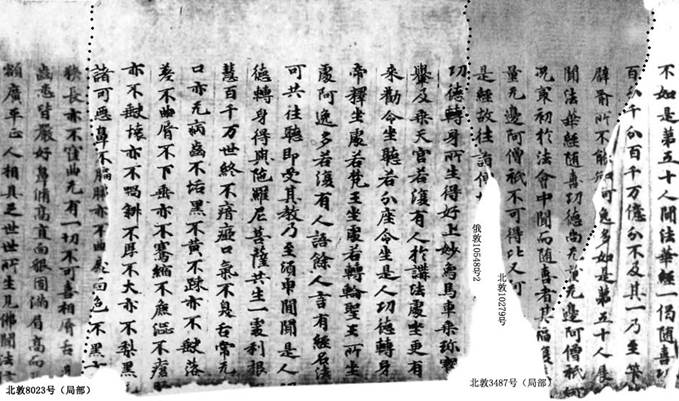 不如是第五十人聞法華經一偈随喜功
百分千分百千万億分不及其一乃至筭
辟喻所不能知阿逸多如是第五十人展
聞法華經随喜功德尚无量无邊阿僧祇何
况寂初於法會中聞而随喜者其福復
量无邊阿僧祇不可得比又阿
是經故往詣僧
功德轉身所生得好上妙象馬車乘珎寶
轝及乘天宫若復有人於講法處坐更有
來勸令坐聽若分座令坐是人功德轉身
帝釋坐處若梵王坐處若轉輪聖王所坐
處阿逸多若復有人語餘人言有經名法
可共往聽即受其教乃至須申間聞是人
德轉身得與陁羅尼菩薩共生一處利根
慧百千万世終不瘖瘂口氣不臭舌常无
口亦无病齒不垢黑不黄不踈亦不缺落
差不曲脣不下垂亦不褰縮不麁澁不瘡
亦不缺壊亦不喎斜不厚不大亦不梨黑
諸可惡鼻不匾㔸亦不曲戾面色不黑
狹長亦不窪曲无有一切不可喜相脣舌
齒悉皆嚴好鼻脩高直面貌圓滿眉高而
額廣平正人相具足世世所生見佛聞法
俄敦10548号2
北敦10279号
北敦3487号（局部）
北敦8023号（局部）